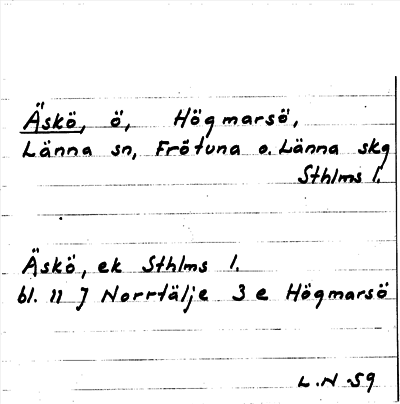 Äskö, ö, Högmarsö,
Länna sn, Frötuna o. Länna skg
Sthlms l.
Äskö, ek Sthlms l.
bl. 11 J Norrtälje 3 e Högmarsö
L.N -59